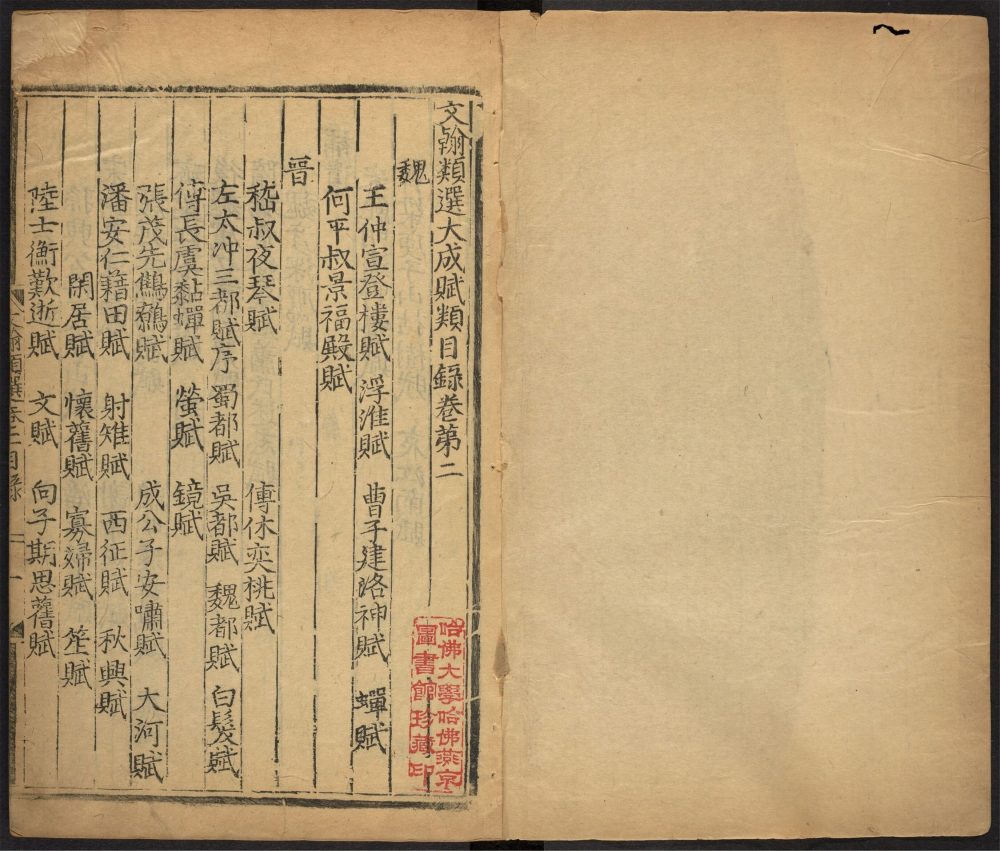 文翰類選大成賦類目錄卷第二
魏
王仲宣登樓賦 浮淮賦 曹子建洛神賦 蟬賦
何平叔景福殿賦
晉
嵇叔夜琴賦 傅休奕桃賦
左太冲三都賦序 蜀都賦 吳都賦 魏都賦 白髮賦
傅長虞黏蟬賦 螢賦 鏡賦
張茂先鷦鷯賦 成公子安嘯賦 大河賦
潘安仁藉田賦 射雉賦 西征賦 秋興賦
閑居賦 懷舊賦 寡婦賦 笙賦
陸士衡歎逝賦 文賦 向子期思舊賦
文翰類選卷二目錄 一
哈佛大學哈佛燕京
圖書館珍藏印